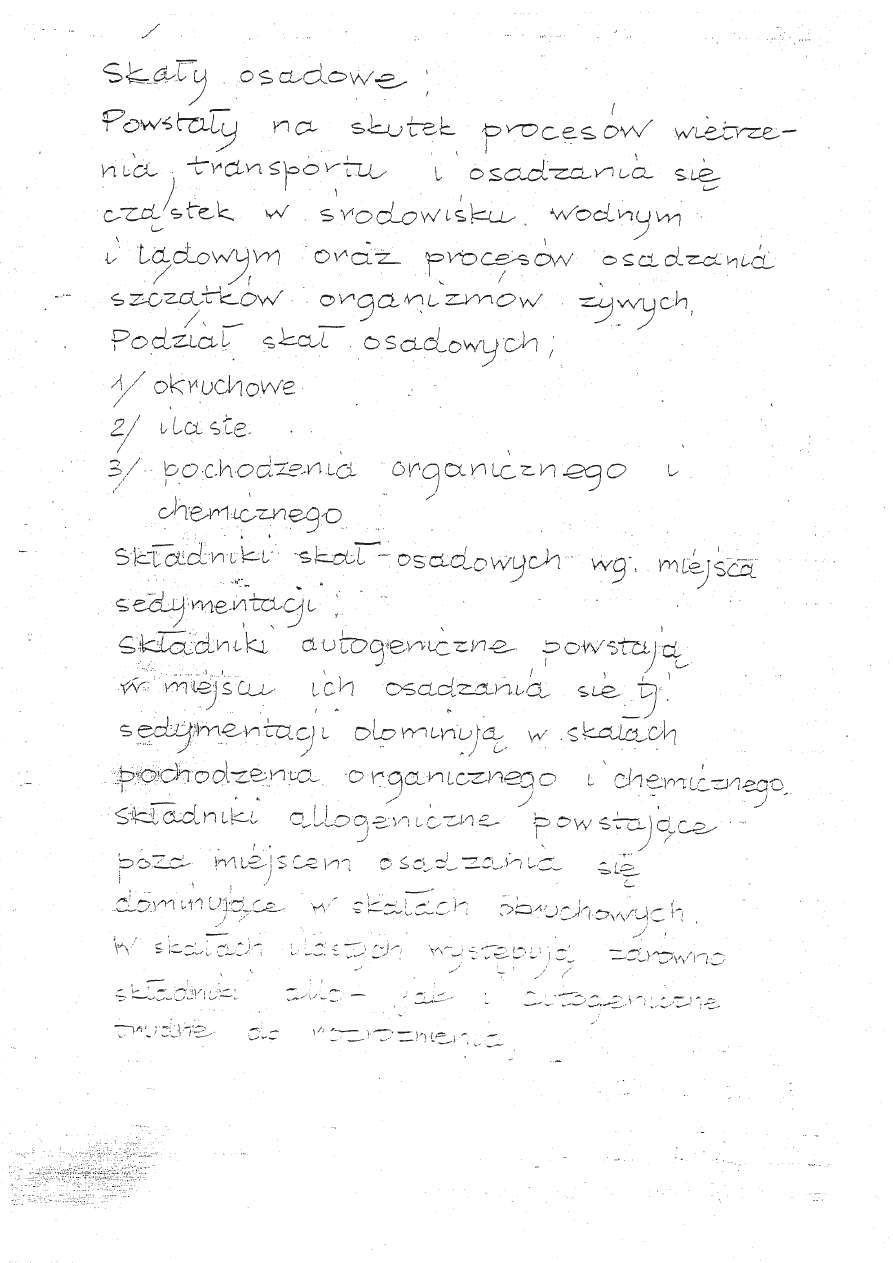 Skały osadowe;
Powstały na skutek procesów wietrze-
nia, transportu i osadzania się
cząstek w środowisku wodnym
i lądowym oraz procesów osadzania
szczątków organizmów żywych,
Podział skał osadowych;
1/ okruchowe
2/ ilaste
3/ pochodzenia organicznego i
chemicznego
Składniki skał osadowych wg. miejsca
sedymentacji;
Składniki autogeniczne powstają
w miejscu ich osadzania się tj.
sedymentacji dominują w skałach
pochodzenia organicznego i chemicznego.
Składniki allogeniczne powstające
poza miejscem osadzania się
dominujące w skałach obruchowych.
W skałach ilastych występują zarówno
składniki allo- jak i autogeniczne
trudne do rozróżnienia.